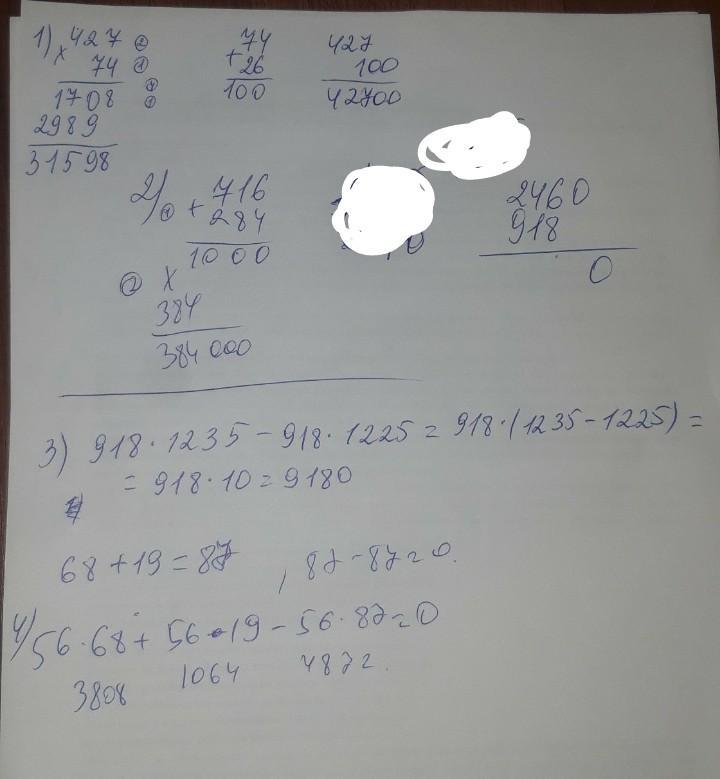 1) × 427 ②
74 ①
1708 ④
2989 ①
31598
74
+ 26
100
427
100
42700
2) ① + 716
284
1000
② ×
384
384 000
2460
918
0
3) 918 · 1235 - 918 · 1225 = 918 · (1235 - 1225) =
= 918 · 10 = 9180
68 + 19 = 87 , 87 - 87 = 0.
4) 56 · 68 + 56 · 19 - 56 · 87 = 0
3808 1064 4872.